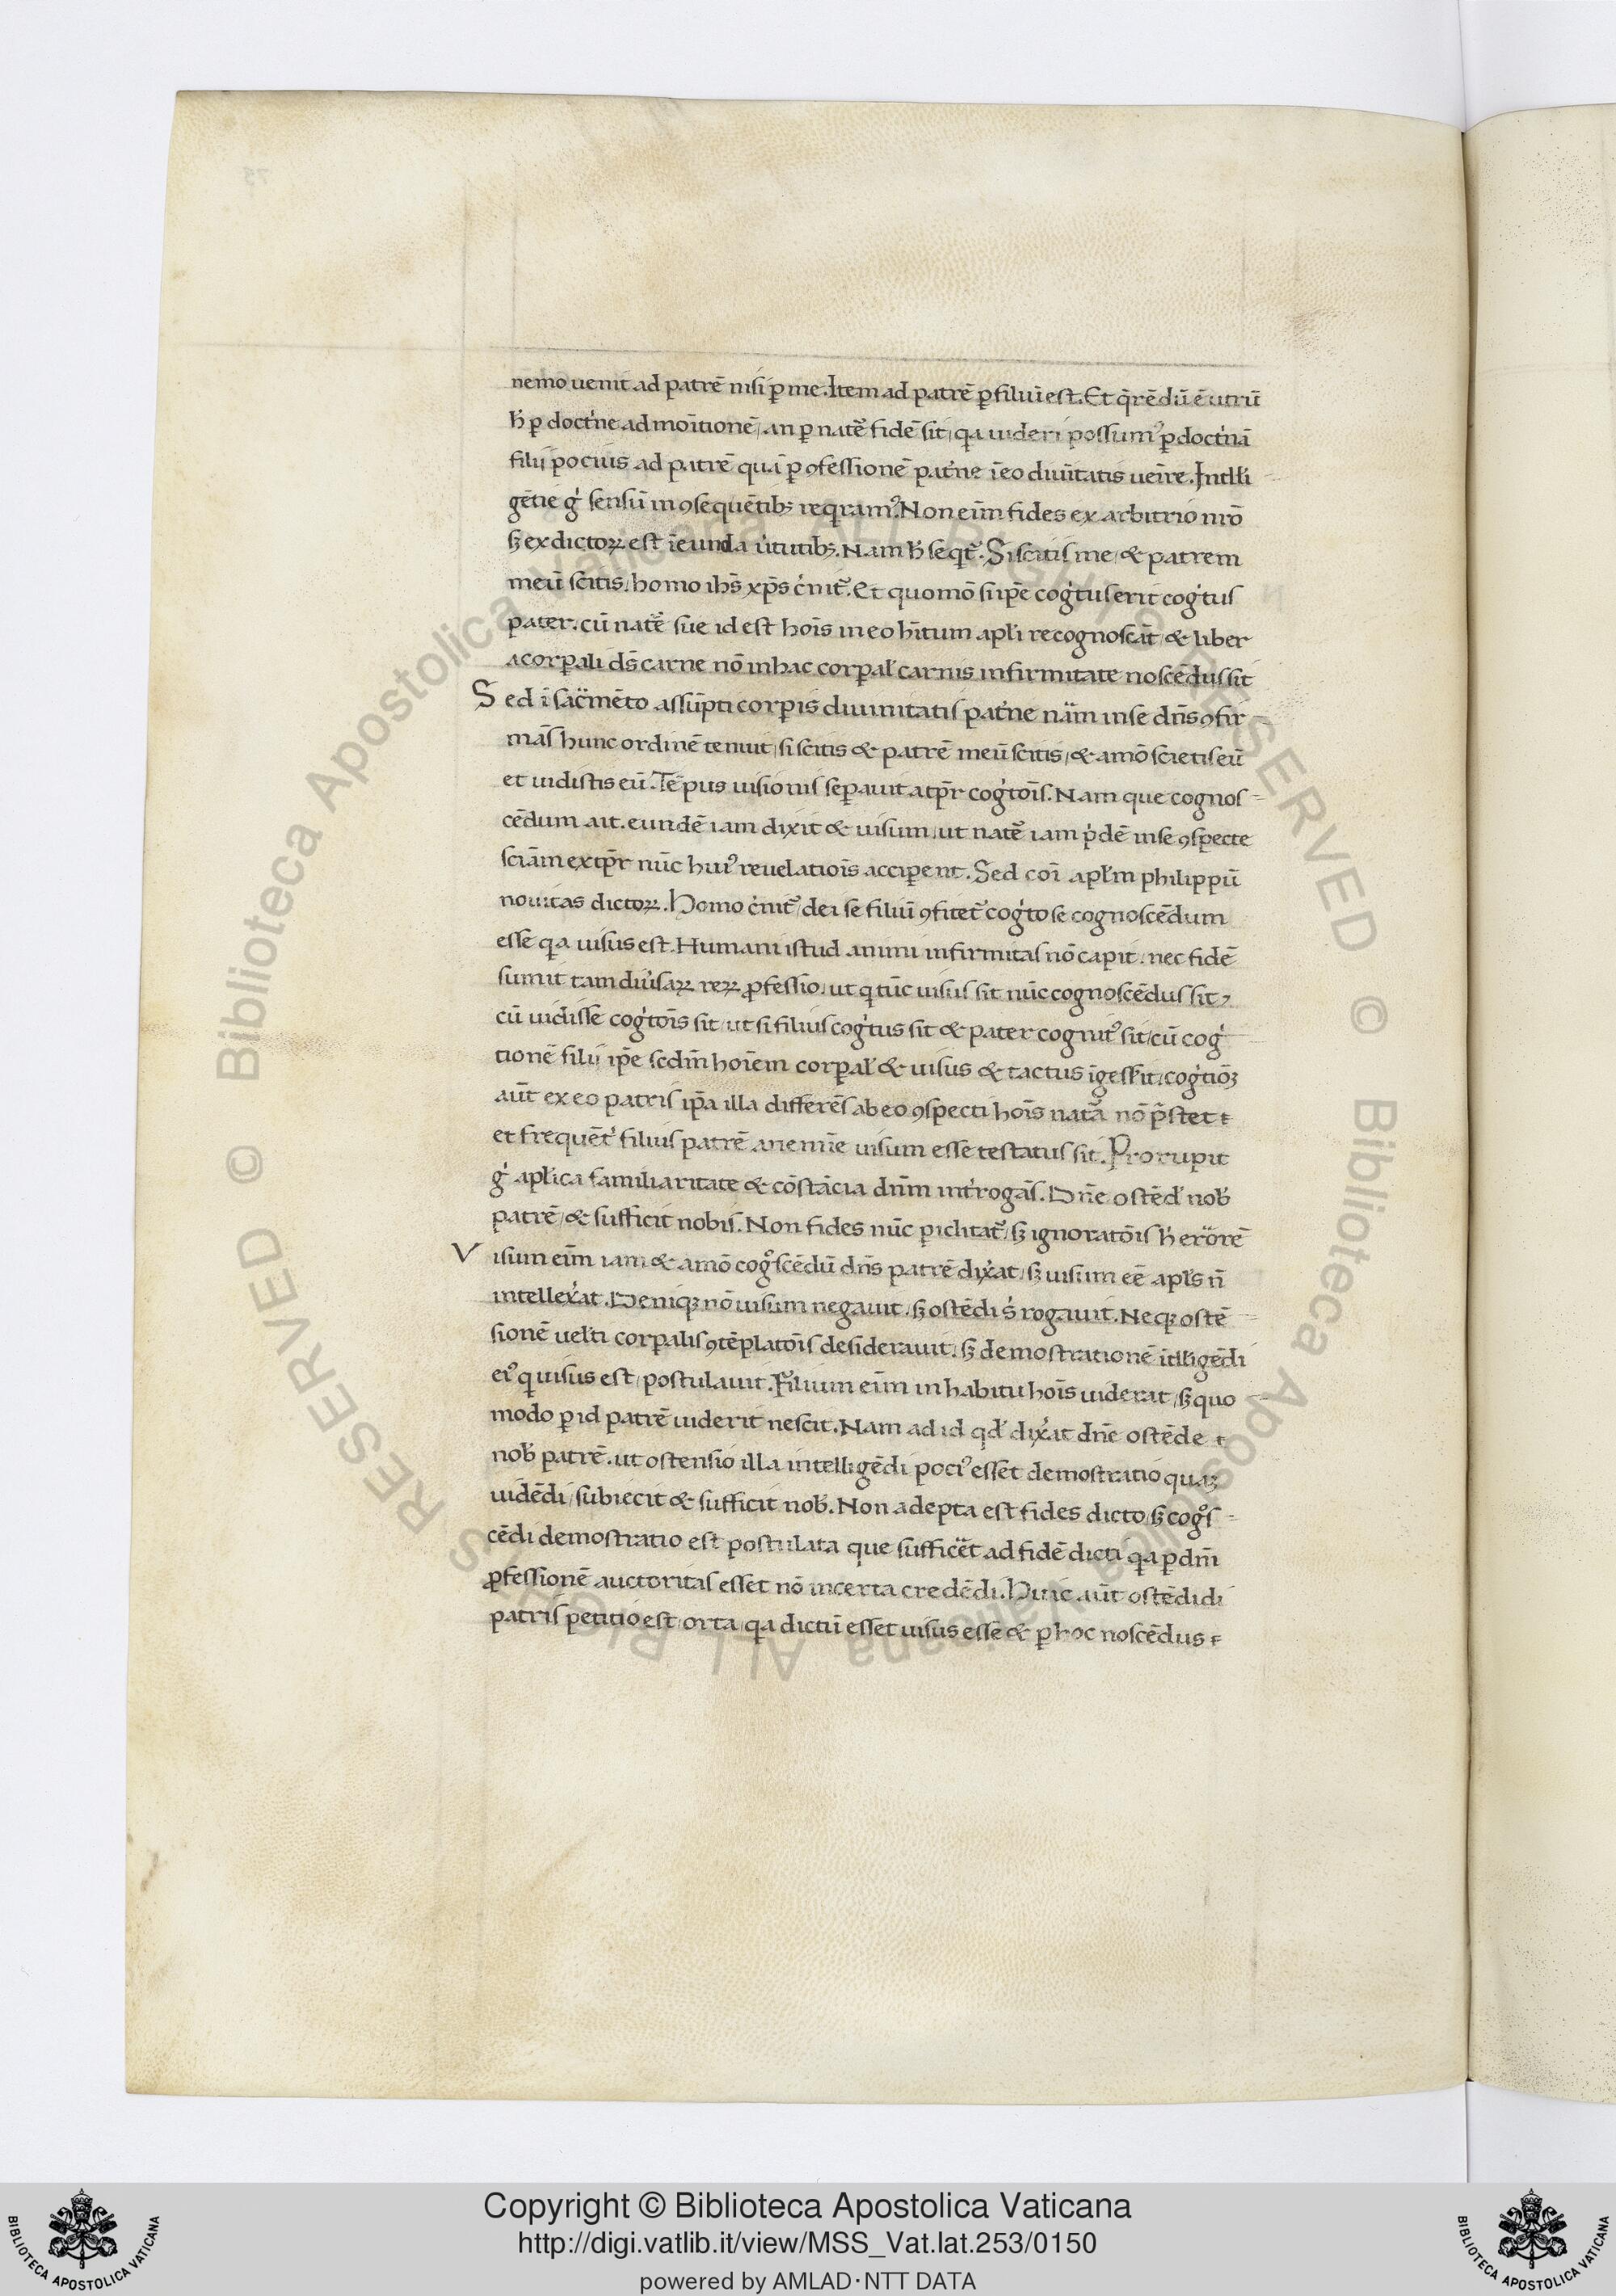 nemo uenit ad patrē nisi ꝑ me. Item ad patrē ꝑ filiū est. Et q̄rēdū ē utrū
h̓ ꝑ doct͛ne admoītionē, an ꝑ nat᷑e fidē sit, qa uideri possumꝰ ꝑ doct͛nā
filij pocius ad patrē quā ꝑ ꝯfessionē pat͛ne ī eo diuītatis ueīre. Intłłi
gētie g̓ sensū in ꝯsequētibꝫ reqramꝰ. Non eīm fides ex arbitrio nrō
sꝫ ex dictoꝝ est īeunda u͛tutibꝫ. Nam h̓ seqt᷑. Si scitis me, & patrem
meū scitis, homo ihs̄ xp̄s c͛nit᷑. Et quomō si ip̄e cog͛tus erit cog͛tus
pater. cū nat᷑e sue id est hoīs in eo hītum apl̓i recognoscāt, & liber
a corꝑali ds̄ carne nō in hac corꝑal̓ carnis infirmitate noscēdus sit
Sed ī sac̄mēto assūpti corꝑis diuinitatis pat͛ne nām in se dn̄s ꝯfir-
mās hunc ordinē tenuit, si scitis & patrē meū scitis, & amō scietis eū
et uidistis eū. Tēpus uisionis seꝑauit a tp̄r cog͛toīs. Nam que cognos-
cēdum ait. eundē iam dixit & uisum, ut nat᷑e iam p͛dē in se ꝯspecte
sciām ex tp̄r nūc huiꝰ reuelatiōis acciꝑent. Sed coī apl̓m philippū
nouitas dictoꝝ. Homo c͛nit᷑, dei se filiū ꝯfitet᷑ cog͛to se cognoscēdum
esse qa uisus est. Humani istud animi infirmitas nō capit. nec fidē
sumit tam diu͛saꝝ reꝝ ꝓfessio. ut q tūc uisus sit nūc cognoscēdus sit,
cū uidisse cog͛toīs sit, ut si filius cog͛tus sit & pater cognitꝰ sit, cū cog͛
tionē filij ip̄e scdm̄ hoīem corꝑal̓ & uisus & tactus īgesserit, cog͛tiōꝫ
aūt ex eo patris ip̄a illa differēs ab eo ꝯspecti hoīs nat᷑a nō p̄stet
et frequēt͛ filius patrē a nemīe uisum esse testatus sit. Prorupit
g̓ apl̓ica familiaritate & cōstācia dn̄m int͛rogās. Dn̄e ostēd̓ nob̓
patrē, & sufficit nobis. Non fides nūc ꝑiclitat᷑, sꝫ ignoratōis h̓ erōrē
Visum eīm iam & amō cogͦscēdū dn̄s patrē dix͛at, sꝫ uisum eē apl̓s n̄
intellex͛at. Deniqꝫ nō uisum negauit, sꝫ ostēdi s̓ rogauit. Neqꝫ ostē
sionē uel̓ti corꝑalis ꝯtēplatōis desiderauit, sꝫ demostrationē ītłłigēdi
eiꝰ q uisus est, postulauit. Filium eīm in habitu hoīs uiderat, sꝫ quo
modo ꝑ id patrē uiderit nescit. Nam ad id qd̓ dix͛at dn̄e ostēde
nob̓ patrē. ut ostensio illa intelligēdi pociꝰ esset demostratio quaꝫ
uidēdi, subiecit & sufficit nob̓. Non adepta est fides dicto, sꝫ cogͦs-
cēdi demostratio est postulata que sufficēt ad fidē dicti qa ꝑ dn̄i
ꝓfessionē auctoritas esset nō incerta credēdi. Huic aūt ostēdēdi
patris petitio est orta, qa dictū esset uisus esse & ꝑ hoc noscēdus
Copyright © Biblioteca Apostolica Vaticana
http://digi.vatlib.it/view/MSS_Vat.lat.253/0150
powered by AMLAD·NTT DATA
BIBLIOTECA APOSTOLICA VATICANA
BIBLIOTECA APOSTOLICA VATICANA
© Biblioteca Apostolica Vaticana ALL RIGHTS RESERVED © Biblioteca Apostolica Vaticana ALL RIGHTS RESERVED